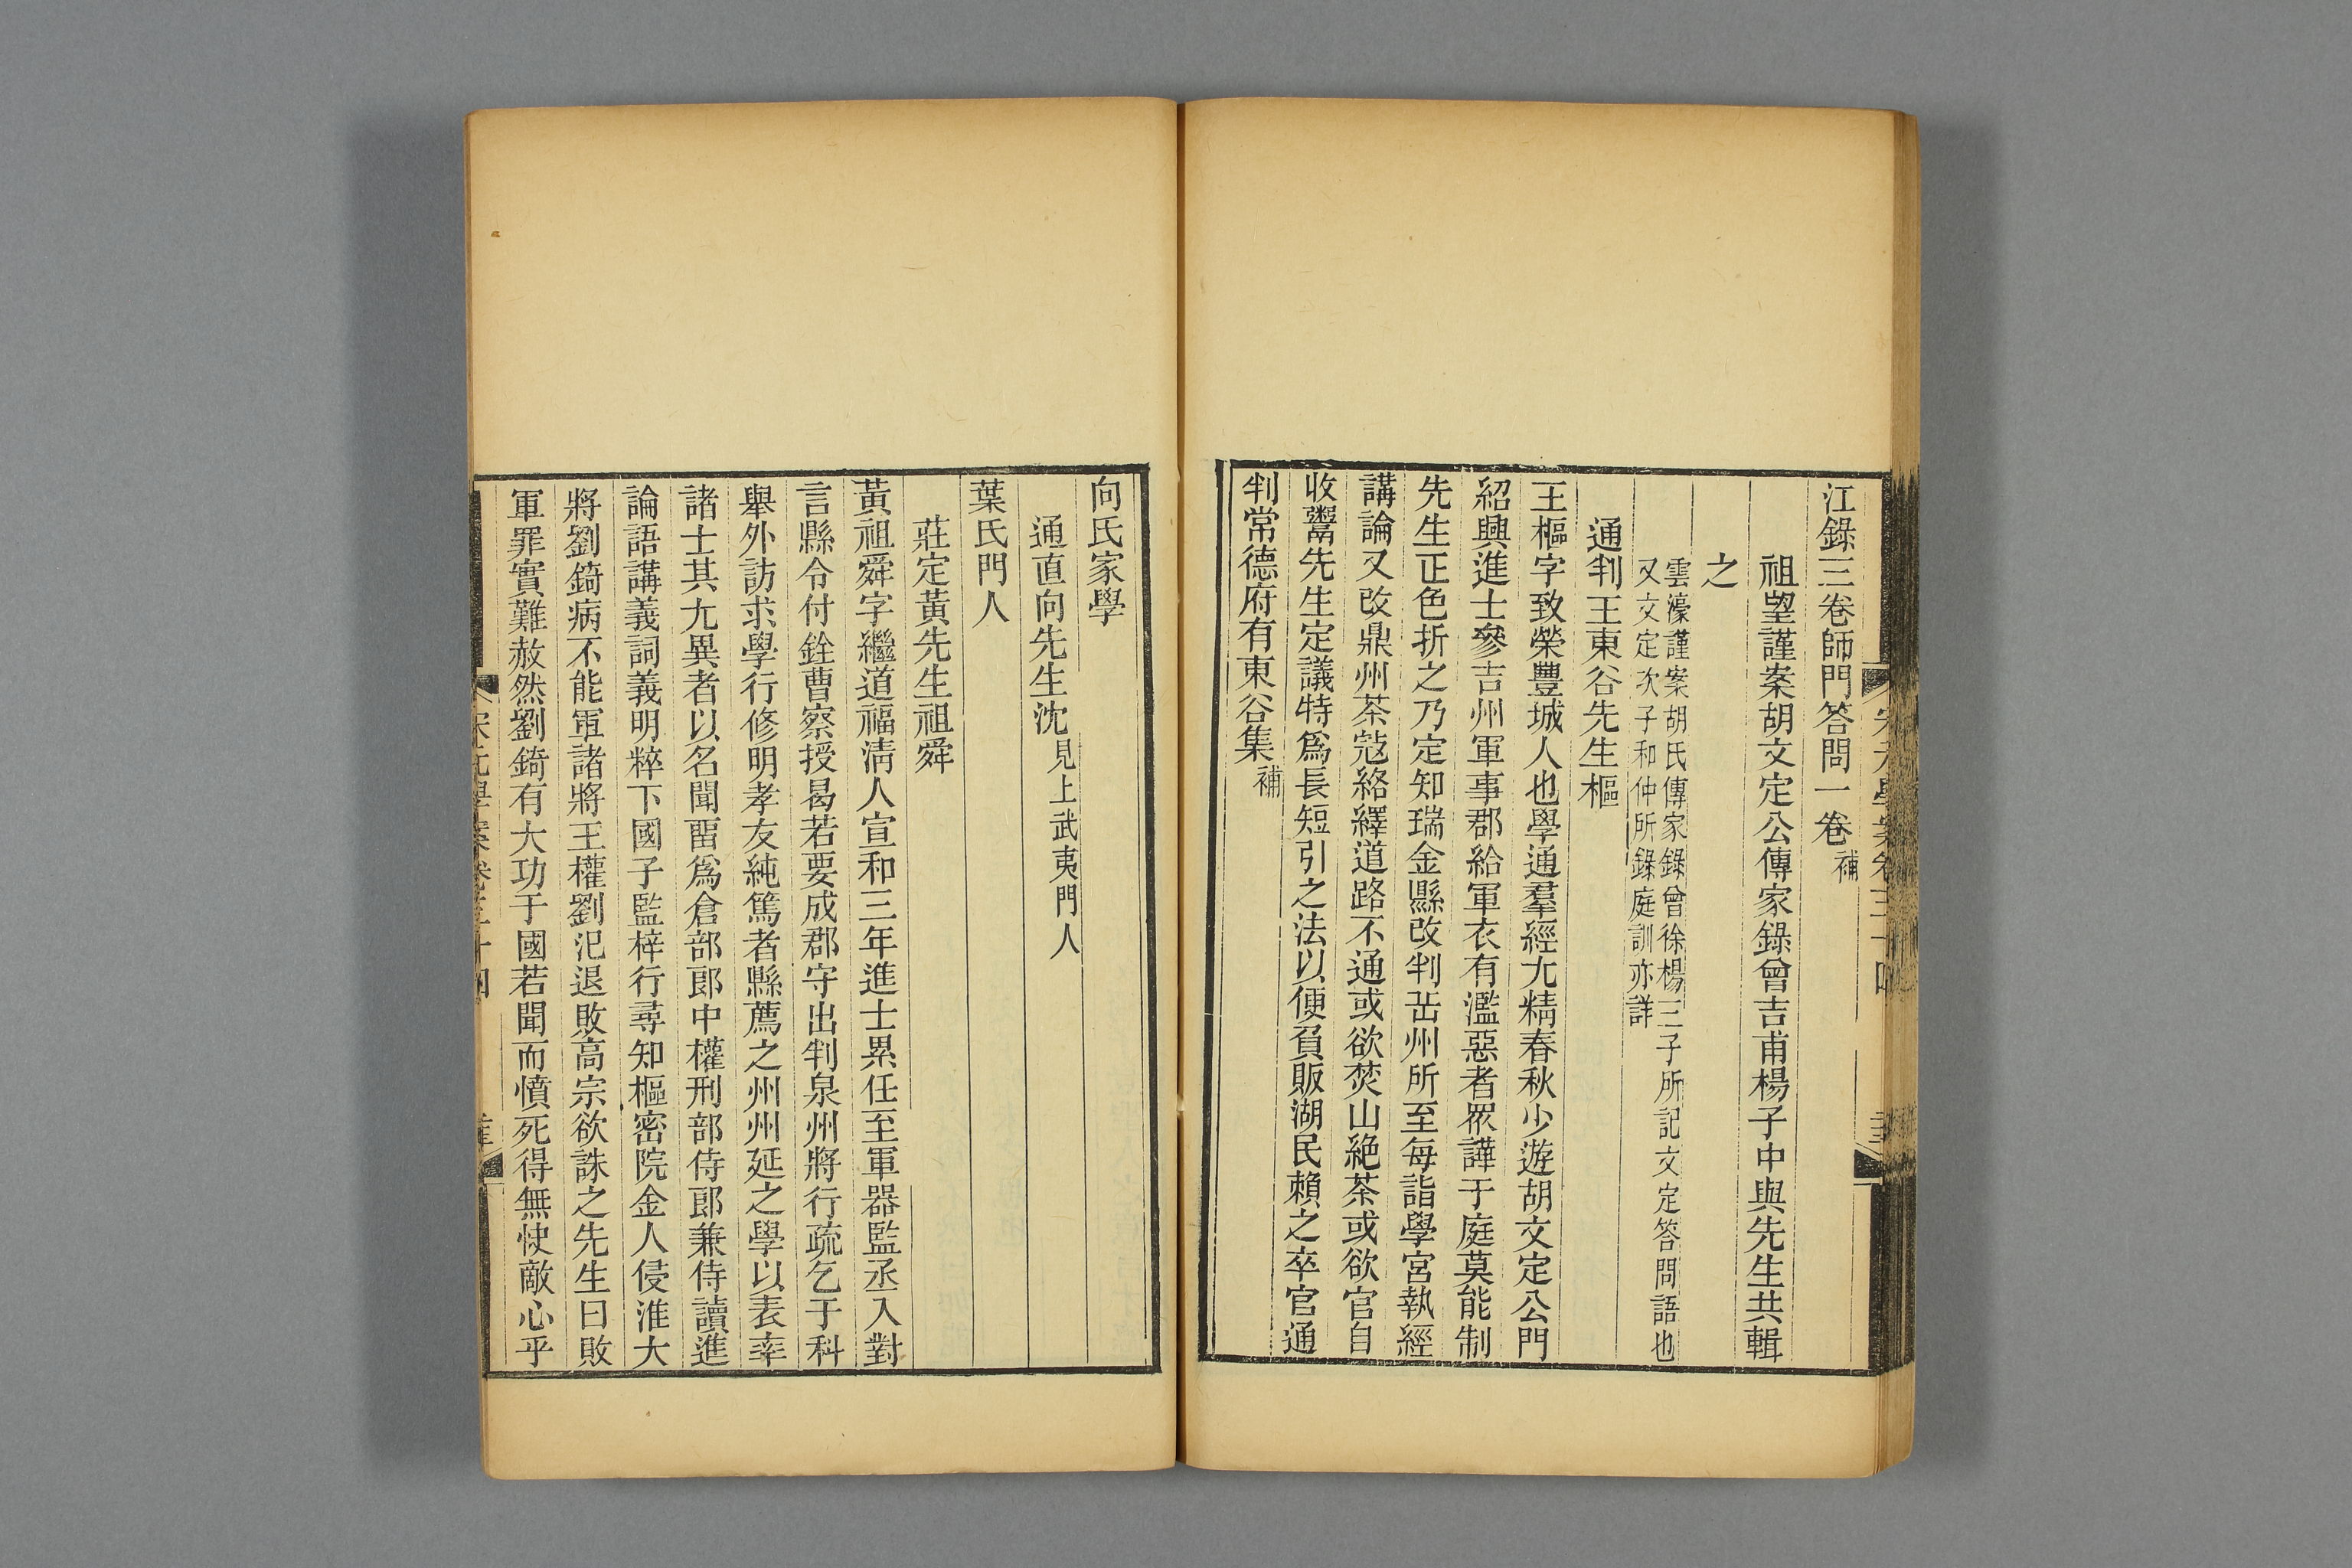 江錄三卷師門答問一卷補
祖望謹案胡文定公傳家錄曾吉甫楊子中與先生共輯
之
雲濠謹案胡氏傳家錄曾徐楊三子所記文定答問語也
又文定次子和仲所錄庭訓亦詳
通判王東谷先生樞
王樞字致榮豐城人也學通羣經尤精春秋少遊胡文定公門
紹興進士參吉州軍事郡給軍衣有濫惡者眾譁于庭莫能制
先生正色折之乃定知瑞金縣改判岳州所至每詣學宮執經
講論又改鼎州茶寇絡繹道路不通或欲焚山絕茶或欲官自
收鬻先生定議特爲長短引之法以便負販湖民賴之卒官通
判常德府有東谷集補
向氏家學
通直向先生沈見上武夷門人
葉氏門人
莊定黃先生祖舜
黃祖舜字繼道福淸人宣和三年進士累任至軍器監丞入對
言縣令付銓曹察授曷若要成郡守出判泉州將行疏乞于科
舉外訪求學行修明孝友純篤者縣薦之州州延之學以表率
諸士其尤異者以名聞畱爲倉部郎中權刑部侍郎兼侍讀進
論語講義詞義明粹下國子監梓行尋知樞密院金人侵淮大
將劉錡病不能軍諸將王權劉汜退敗高宗欲誅之先生曰敗
軍罪實難赦然劉錡有大功于國若聞而憤死得無快敵心乎
宋元學案卷三十四